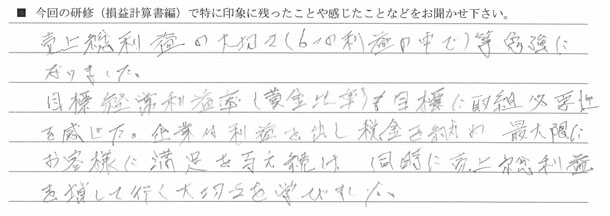 ■ 今回の研修（損益計算書編）で特に印象に残ったことや感じたことなどをお聞かせ下さい。
売上総利益の大切さ（6つの利益の中で）等勉強に
なりました。
目標経常利益率（黄金比率）を目標に取組必要性
を感じた。企業は利益を出し税金を納め 最大限に
お客様に満足を与え続け 同時に売上総利益
を残して行く大切さを学びました。